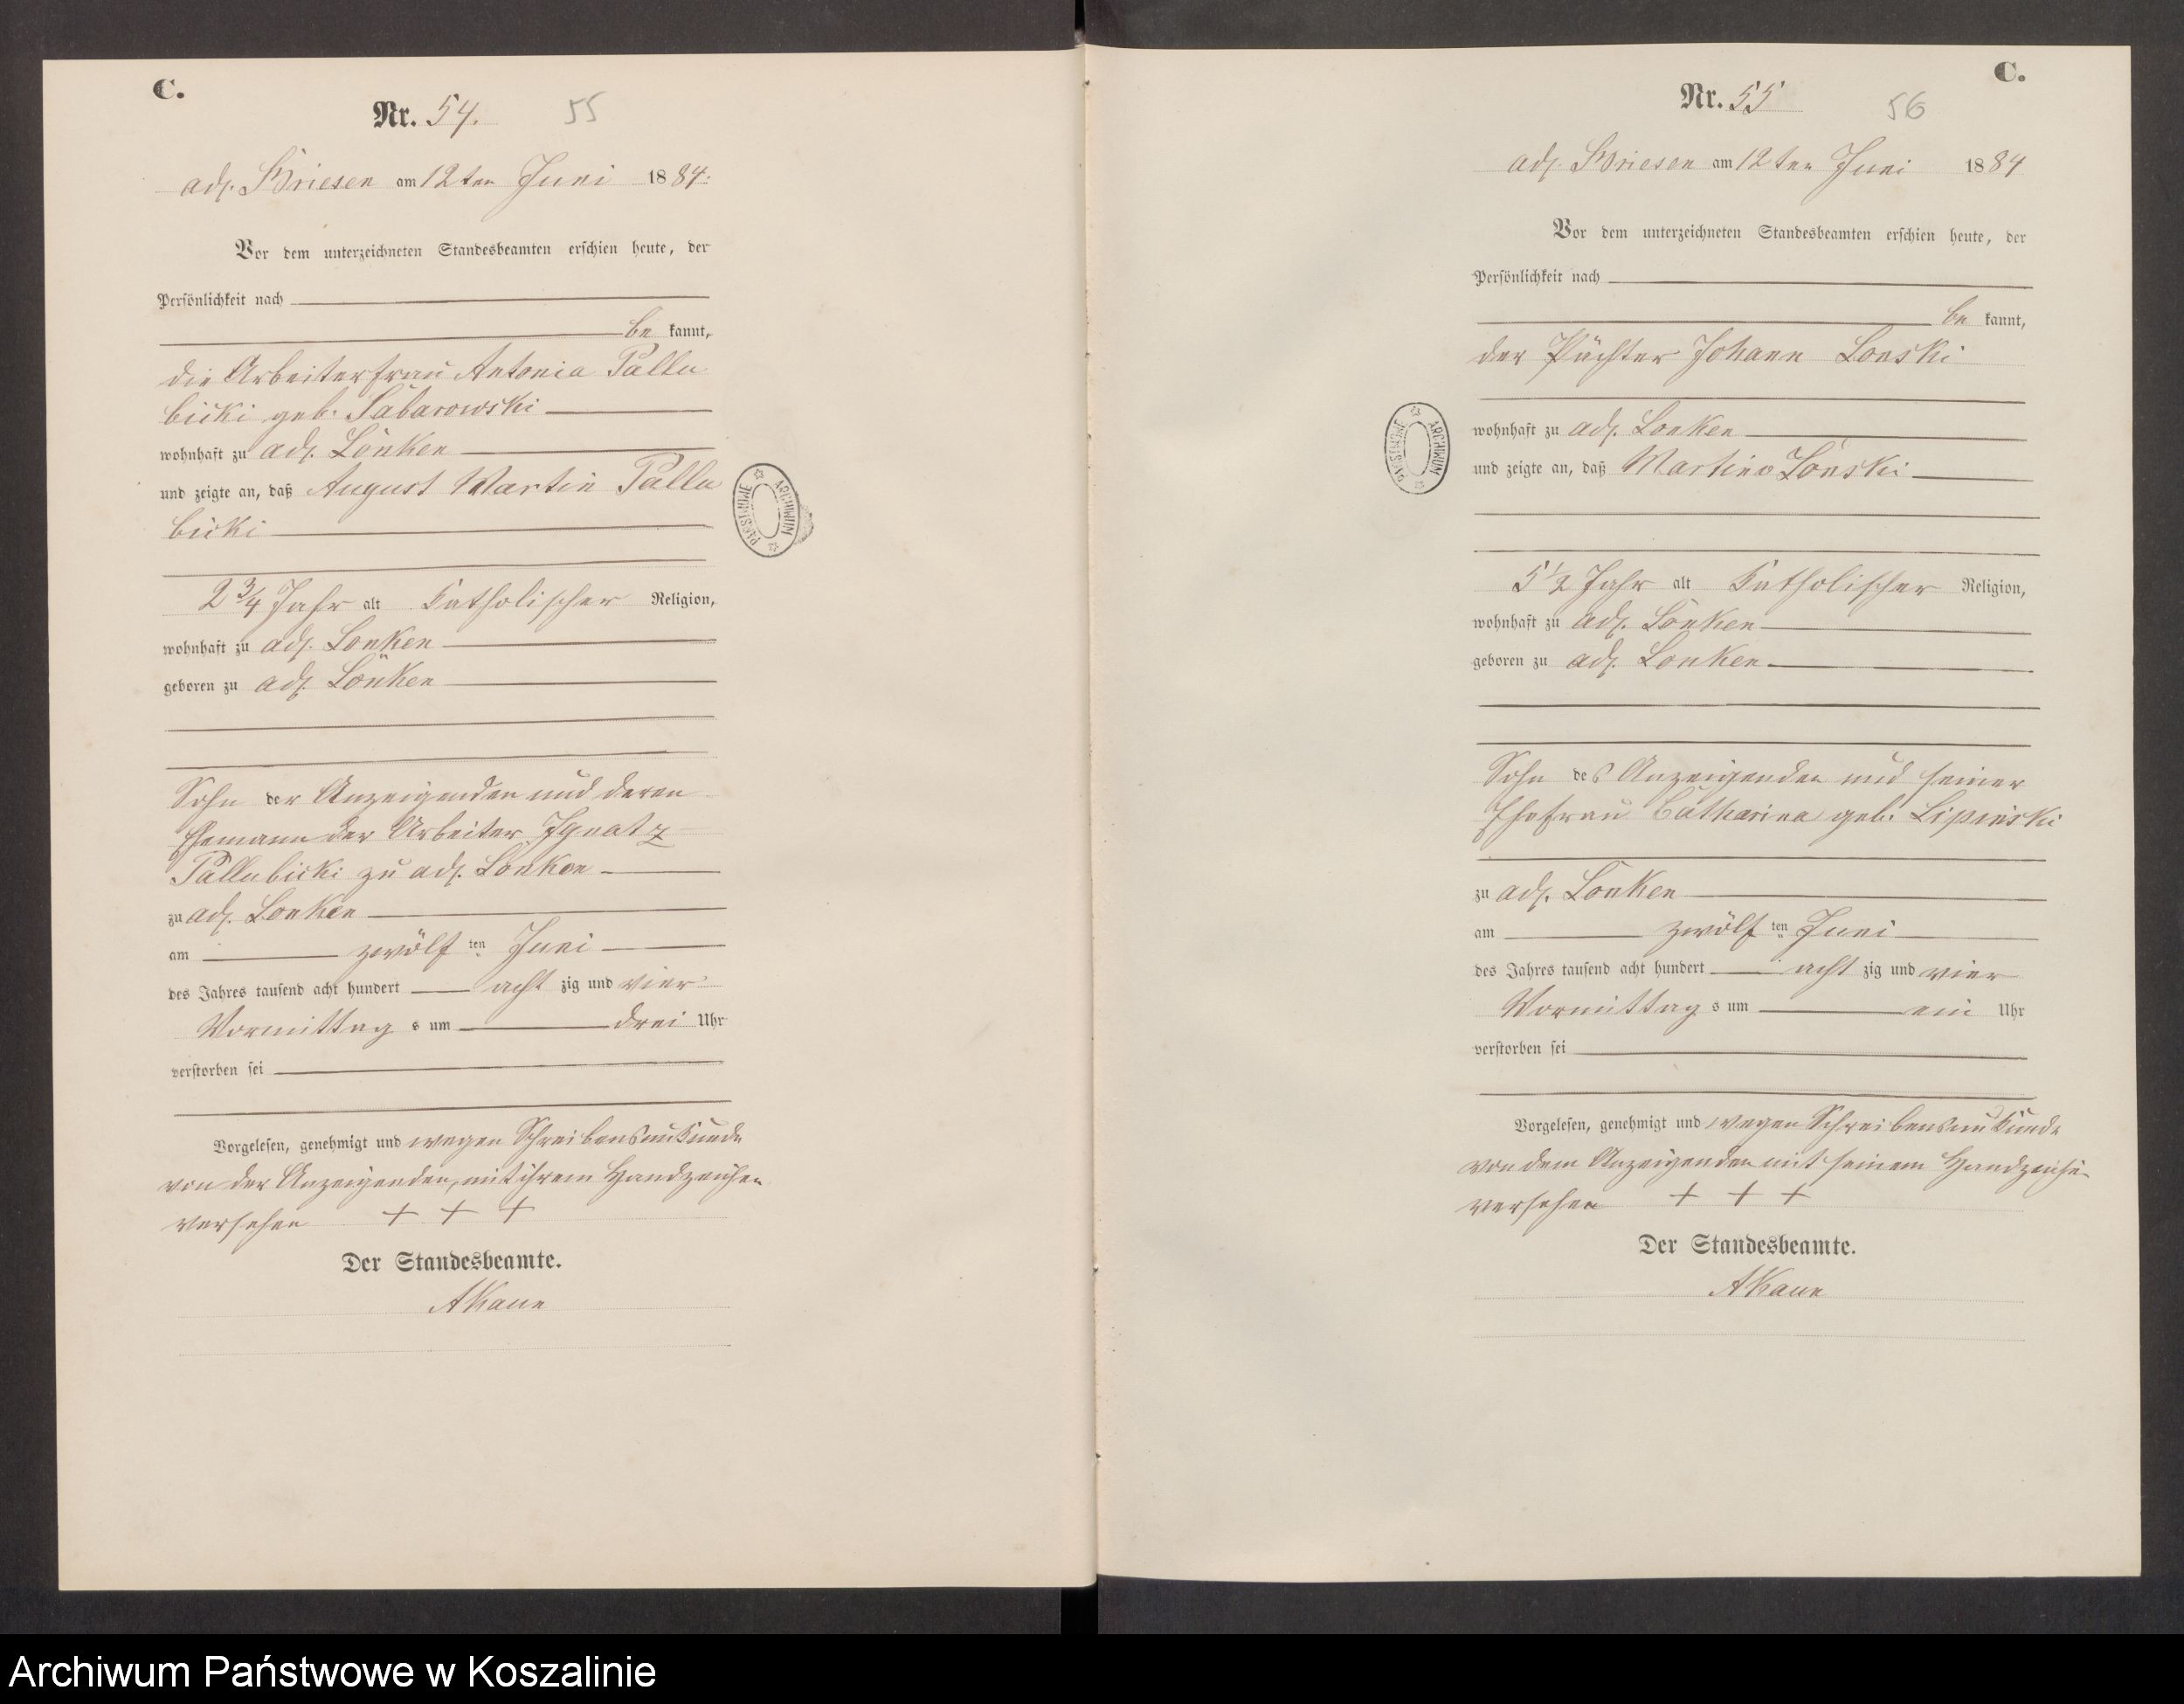 C.
Nr. 54. 55
adl. Briesen am 12ten Juni 1884.
Vor dem unterzeichneten Standesbeamten erschien heute, der
Persönlichkeit nach
be kannt,
die Arbeiterfrau Antonia Pallu
bicki geb.
wohnhaft zu adl. Lonken
und zeigte an, daß August Martin Pallu
bicki
2 3/4 Jahr alt Katholischer Religion,
wohnhaft zu adl. Lonken
geboren zu adl. Lonken
Sohn der Anzeigenden und deren
Ehemann der Arbeiter Ignatz
Pallubicki zu adl. Lonken
zu adl. Lonken
am zwölf ten Juni
des Jahres tausend acht hundert acht zig und vier
Vormittag s um drei Uhr
verstorben sei
Vorgelesen, genehmigt und wegen Schreibensunkunde
von der Anzeigenden, mit ihrem Handzeichen
versehen + + +
Der Standesbeamte.
ARCHIWUM PAŃSTWOWE
C.
Nr. 55 56
adl. Briesen am 12ten Juni 1884
Vor dem unterzeichneten Standesbeamten erschien heute, der
Persönlichkeit nach
be kannt,
der Pächter Johann Lonski
wohnhaft zu adl. Lonken
und zeigte an, daß Martin Lonski
5 1/2 Jahr alt Katholischer Religion,
wohnhaft zu adl. Lonken
geboren zu adl. Lonken
Sohn des Anzeigenden und seiner
Ehefrau Catharina geb. Lipinski
zu adl. Lonken
am zwölf ten Juni
des Jahres tausend acht hundert acht zig und vier
Vormittag s um ein Uhr
verstorben sei
Vorgelesen, genehmigt und wegen Schreibensunkunde
von dem Anzeigenden mit seinem Handzeichen
versehen + + +
Der Standesbeamte.
ARCHIWUM PAŃSTWOWE
Archiwum Państwowe w Koszalinie